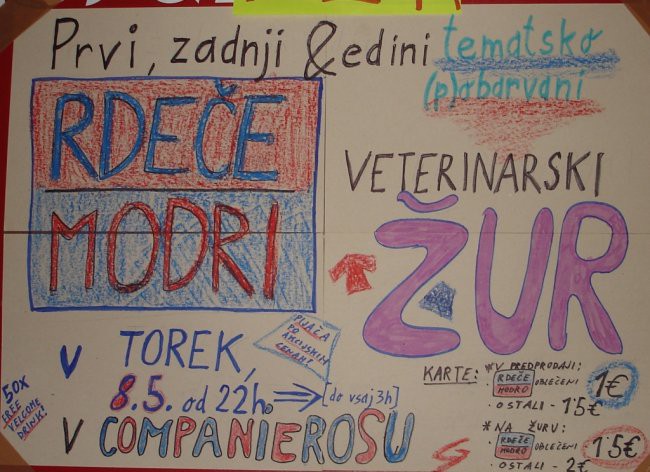 Prvi, zadnji & edini tematsko
(p)obarvani
RDEČE
MODRI
VETERINARSKI
ŽUR
PIJAČA
PO
AKCIJSKIM
CENAM!
V TOREK,
8.5. od 22h. ⇒ [do vsaj 3h]
V COMPANIEROSU
50X
FREE
WELCOME
DRINK!
KARTE:
* V PREDPRODAJI:
• RDEČE MODRO OBLEČENI 1€
• OSTALI - 1'5€
* NA ŽURU:
• RDEČE MODRO OBLEČENI - 1'5€
• OSTALI - 2€